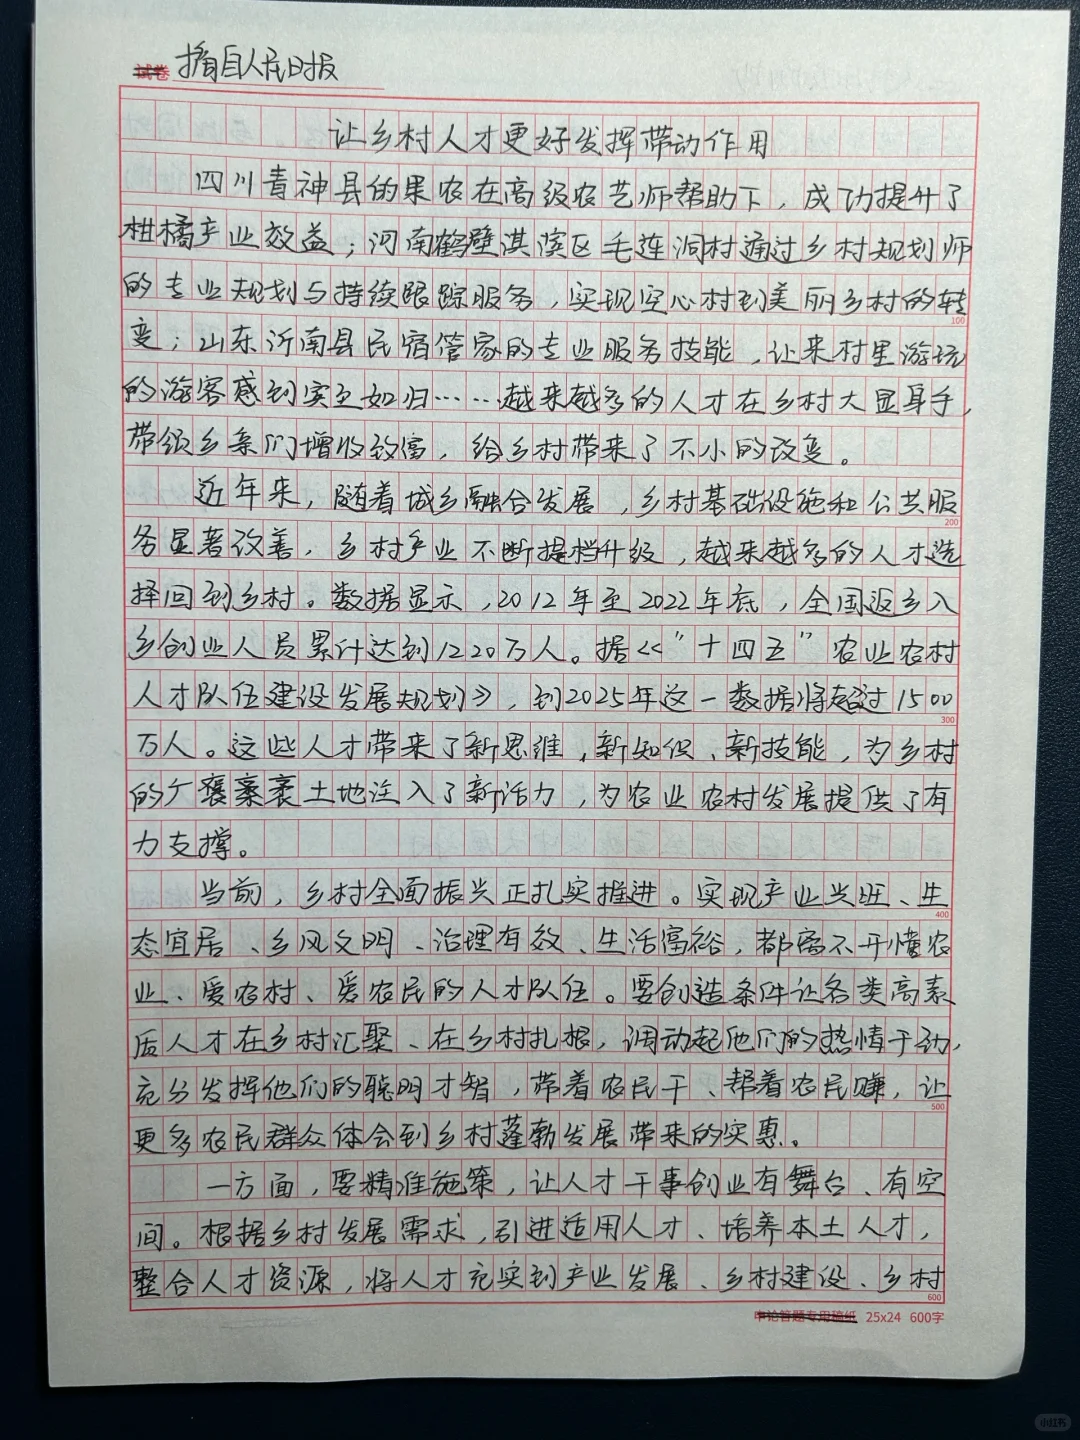 试卷 摘自人民日报
让乡村人才更好发挥带动作用
四川青神县的果农在高级农艺师帮助下，成功提升了
柑橘产业效益；河南鹤壁淇滨区毛连洞村通过乡村规划师
的专业规划与持续跟踪服务，实现空心村到美丽乡村的转
100
变；山东沂南县民宿管家的专业服务技能，让来村里游玩
的游客感到宾至如归……越来越多的人才在乡村大显身手，
带领乡亲们增收致富，给乡村带来了不小的改变。
近年来，随着城乡融合发展，乡村基础设施和公共服
200
务显著改善，乡村产业不断提档升级，越来越多的人才选
择回到乡村。数据显示，2012年至2022年底，全国返乡入
乡创业人员累计达到1220万人。据《“十四五”农业农村
人才队伍建设发展规划》，到2025年这一数据将超过1500
300
万人。这些人才带来了新思维，新知识、新技能，为乡村
的广袤土地注入了新活力，为农业农村发展提供了有
力支撑。
当前，乡村全面振兴正扎实推进。实现产业兴旺、生
400
态宜居、乡风文明、治理有效、生活富裕，都离不开懂农
业、爱农村、爱农民的人才队伍。要创造条件让各类高素
质人才在乡村汇聚、在乡村扎根，调动起他们的热情干劲，
充分发挥他们的聪明才智，带着农民干、帮着农民赚，让
500
更多农民群众体会到乡村蓬勃发展带来的实惠。
一方面，要精准施策，让人才干事创业有舞台、有空
间。根据乡村发展需求，引进适用人才、培养本土人才，
整合人才资源，将人才充实到产业发展、乡村建设、乡村
600
申论答题专用稿纸 25x24 600字
小红书